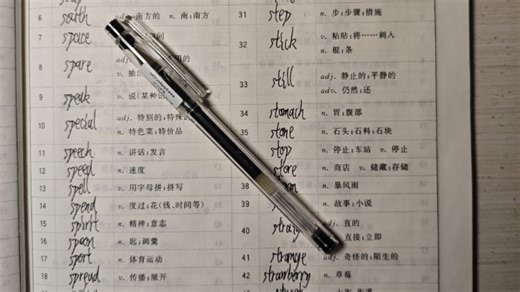 south adj. 南方的 n. 南;南方
7 space
8 spare adj.
v.
9 speak v. 说(某种
10 special adj. 特别的;特殊
n. 特色菜;特价品
11 speech n. 讲话;发言
12 speed n. 速度
13 spell v. 用字母拼;拼写
14 spend v. 度过;花(钱、时间等)
15 spirit n. 精神;意志
16 spoon n. 匙;调羹
17 sport n. 体育运动
18 spread v. 传播;展开
31 step n. 步;步骤;措施
32 stick v. 粘贴;将……刺入
n. 棍;条
33 still adj. 静止的;平静的
adv. 仍然;还
34 stomach n. 胃;腹部
35 stone n. 石头;石料;石块
stop n. 停止;车站 v. 停止
store n. 商店 v. 储藏;存储
38 n. 暴风雨
39 n. 故事;小说
40 adj. 直的
直接;立即
41 strange adj. 奇怪的;陌生的
42 strawberry n. 草莓